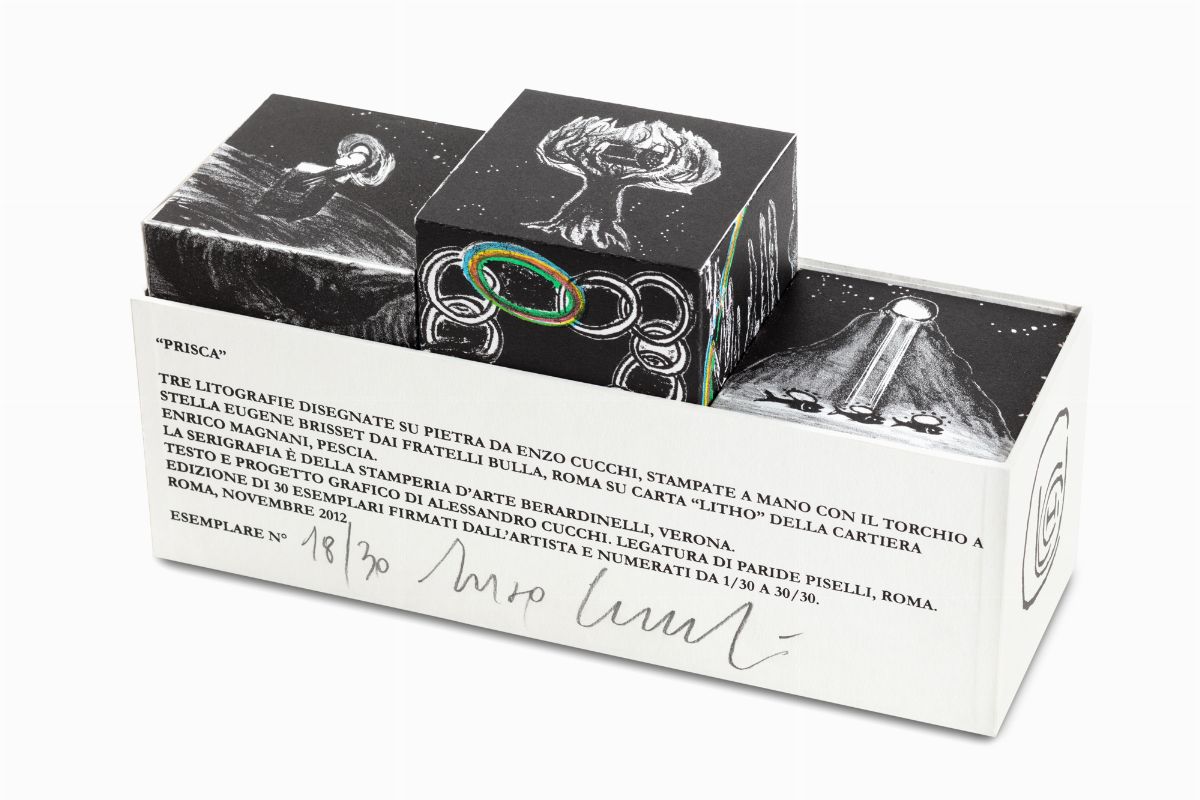 “PRISCA”
TRE LITOGRAFIE DISEGNATE SU PIETRA DA ENZO CUCCHI, STAMPATE A MANO CON IL TORCHIO A
STELLA EUGENE BRISSET DAI FRATELLI BULLA, ROMA SU CARTA “LITHO” DELLA CARTIERA
ENRICO MAGNANI, PESCIA.
LA SERIGRAFIA È DELLA STAMPERIA D’ARTE BERARDINELLI, VERONA.
TESTO E PROGETTO GRAFICO DI ALESSANDRO CUCCHI. LEGATURA DI PARIDE PISELLI, ROMA.
EDIZIONE DI 30 ESEMPLARI FIRMATI DALL’ARTISTA E NUMERATI DA 1/30 A 30/30.
ROMA, NOVEMBRE 2012
ESEMPLARE N° 18/30 Enzo Cucchi